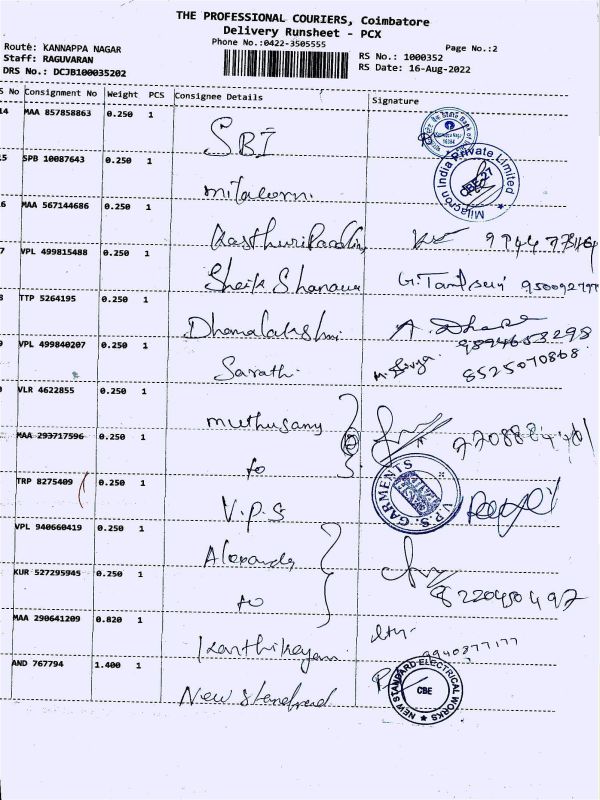 THE PROFESSIONAL COURIERS, Coimbatore
Delivery Runsheet - PCX
Phone No.:0422-3505555
Page No.:2
Route: KANNAPPA NAGAR
Staff: RAGUVARAN
DRS No.: DCJB100035202
RS No.: 1000352
RS Date: 16-Aug-2022
S No Consignment No Weight PCS Consignee Details Signature
14 MAA 857858863 0.250 1 SBI
5 SPB 10087643 0.250 1
Milacron India Private Limited
CBE-27
6 MAA 567144686 0.250 1
7 VPL 499815488 0.250 1 Sheik Shanawa
8 TTP 5264195 0.250 1 Dhanalakshmi
9894653298
9 VPL 499840207 0.250 1 Sarath.
8525070868
VLR 4622855 0.250 1 muthusamy
MAA 293717596 0.250 1 to
TRP 8275409 0.250 1 V.P.S
V.P.S. GARMENTS
VPL 940660419 0.250 1
KUR 527295945 0.250 1 to
8220450497
MAA 290641209 0.820 1 Karthikeyan
9940877177
AND 767794 1.400 1 New Standard
NEW STANDARD ELECTRICAL WORKS
CBE